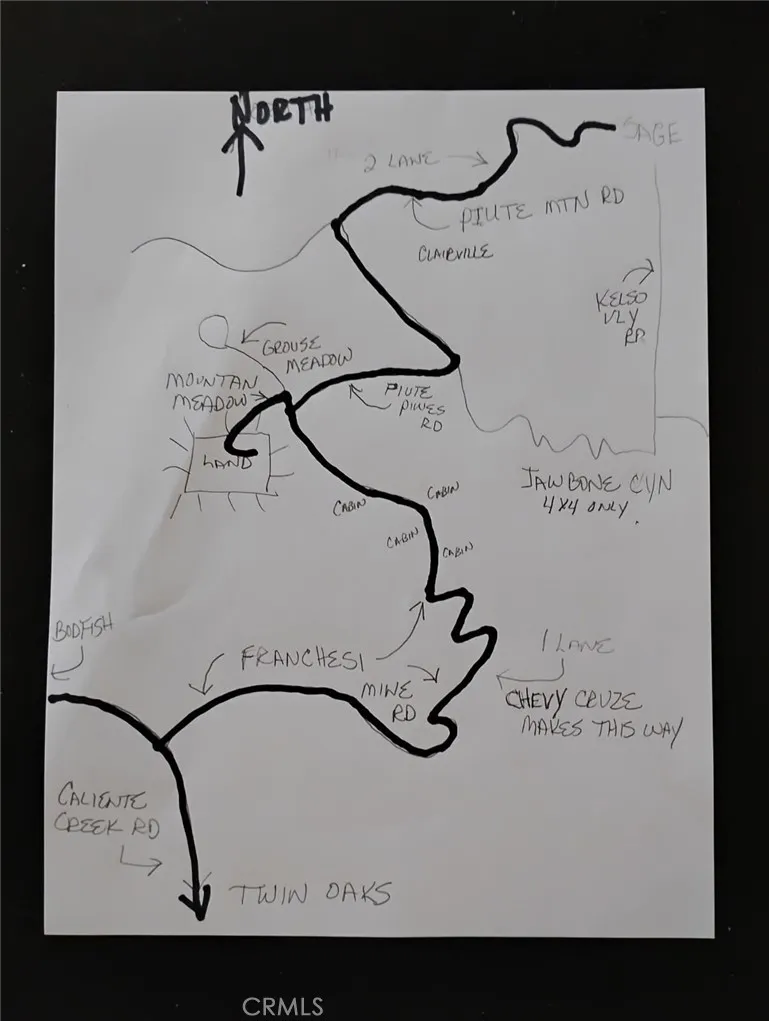 NORTH
SAGE
2 LANE
PIUTE MTN RD
CLAIRVILLE
KELSO
VLY
RD
GROUSE
MEADOW
MOUNTAN
MEADOW
PIUTE
PINES
RD
LAND
JAWBONE CYN
4X4 ONLY.
CABIN
CABIN
CABIN
CABIN
BODFISH
FRANCHESI
MINE
RD
1 LANE
CHEVY CRUZE
MAKES THIS WAY
CALIENTE
CREEK RD
TWIN OAKS
CRMLS